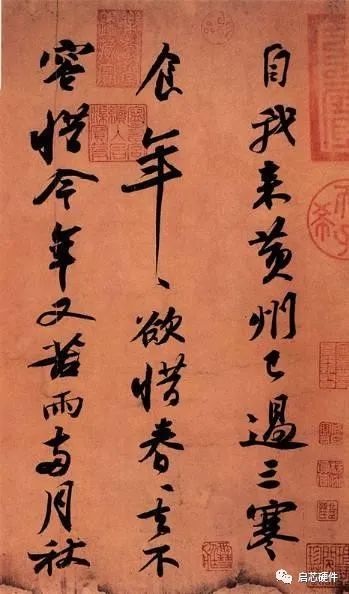 自我来黄州已过三寒
食年〻欲惜春〻去不
容惜今年又苦雨两月秋
启芯硬件